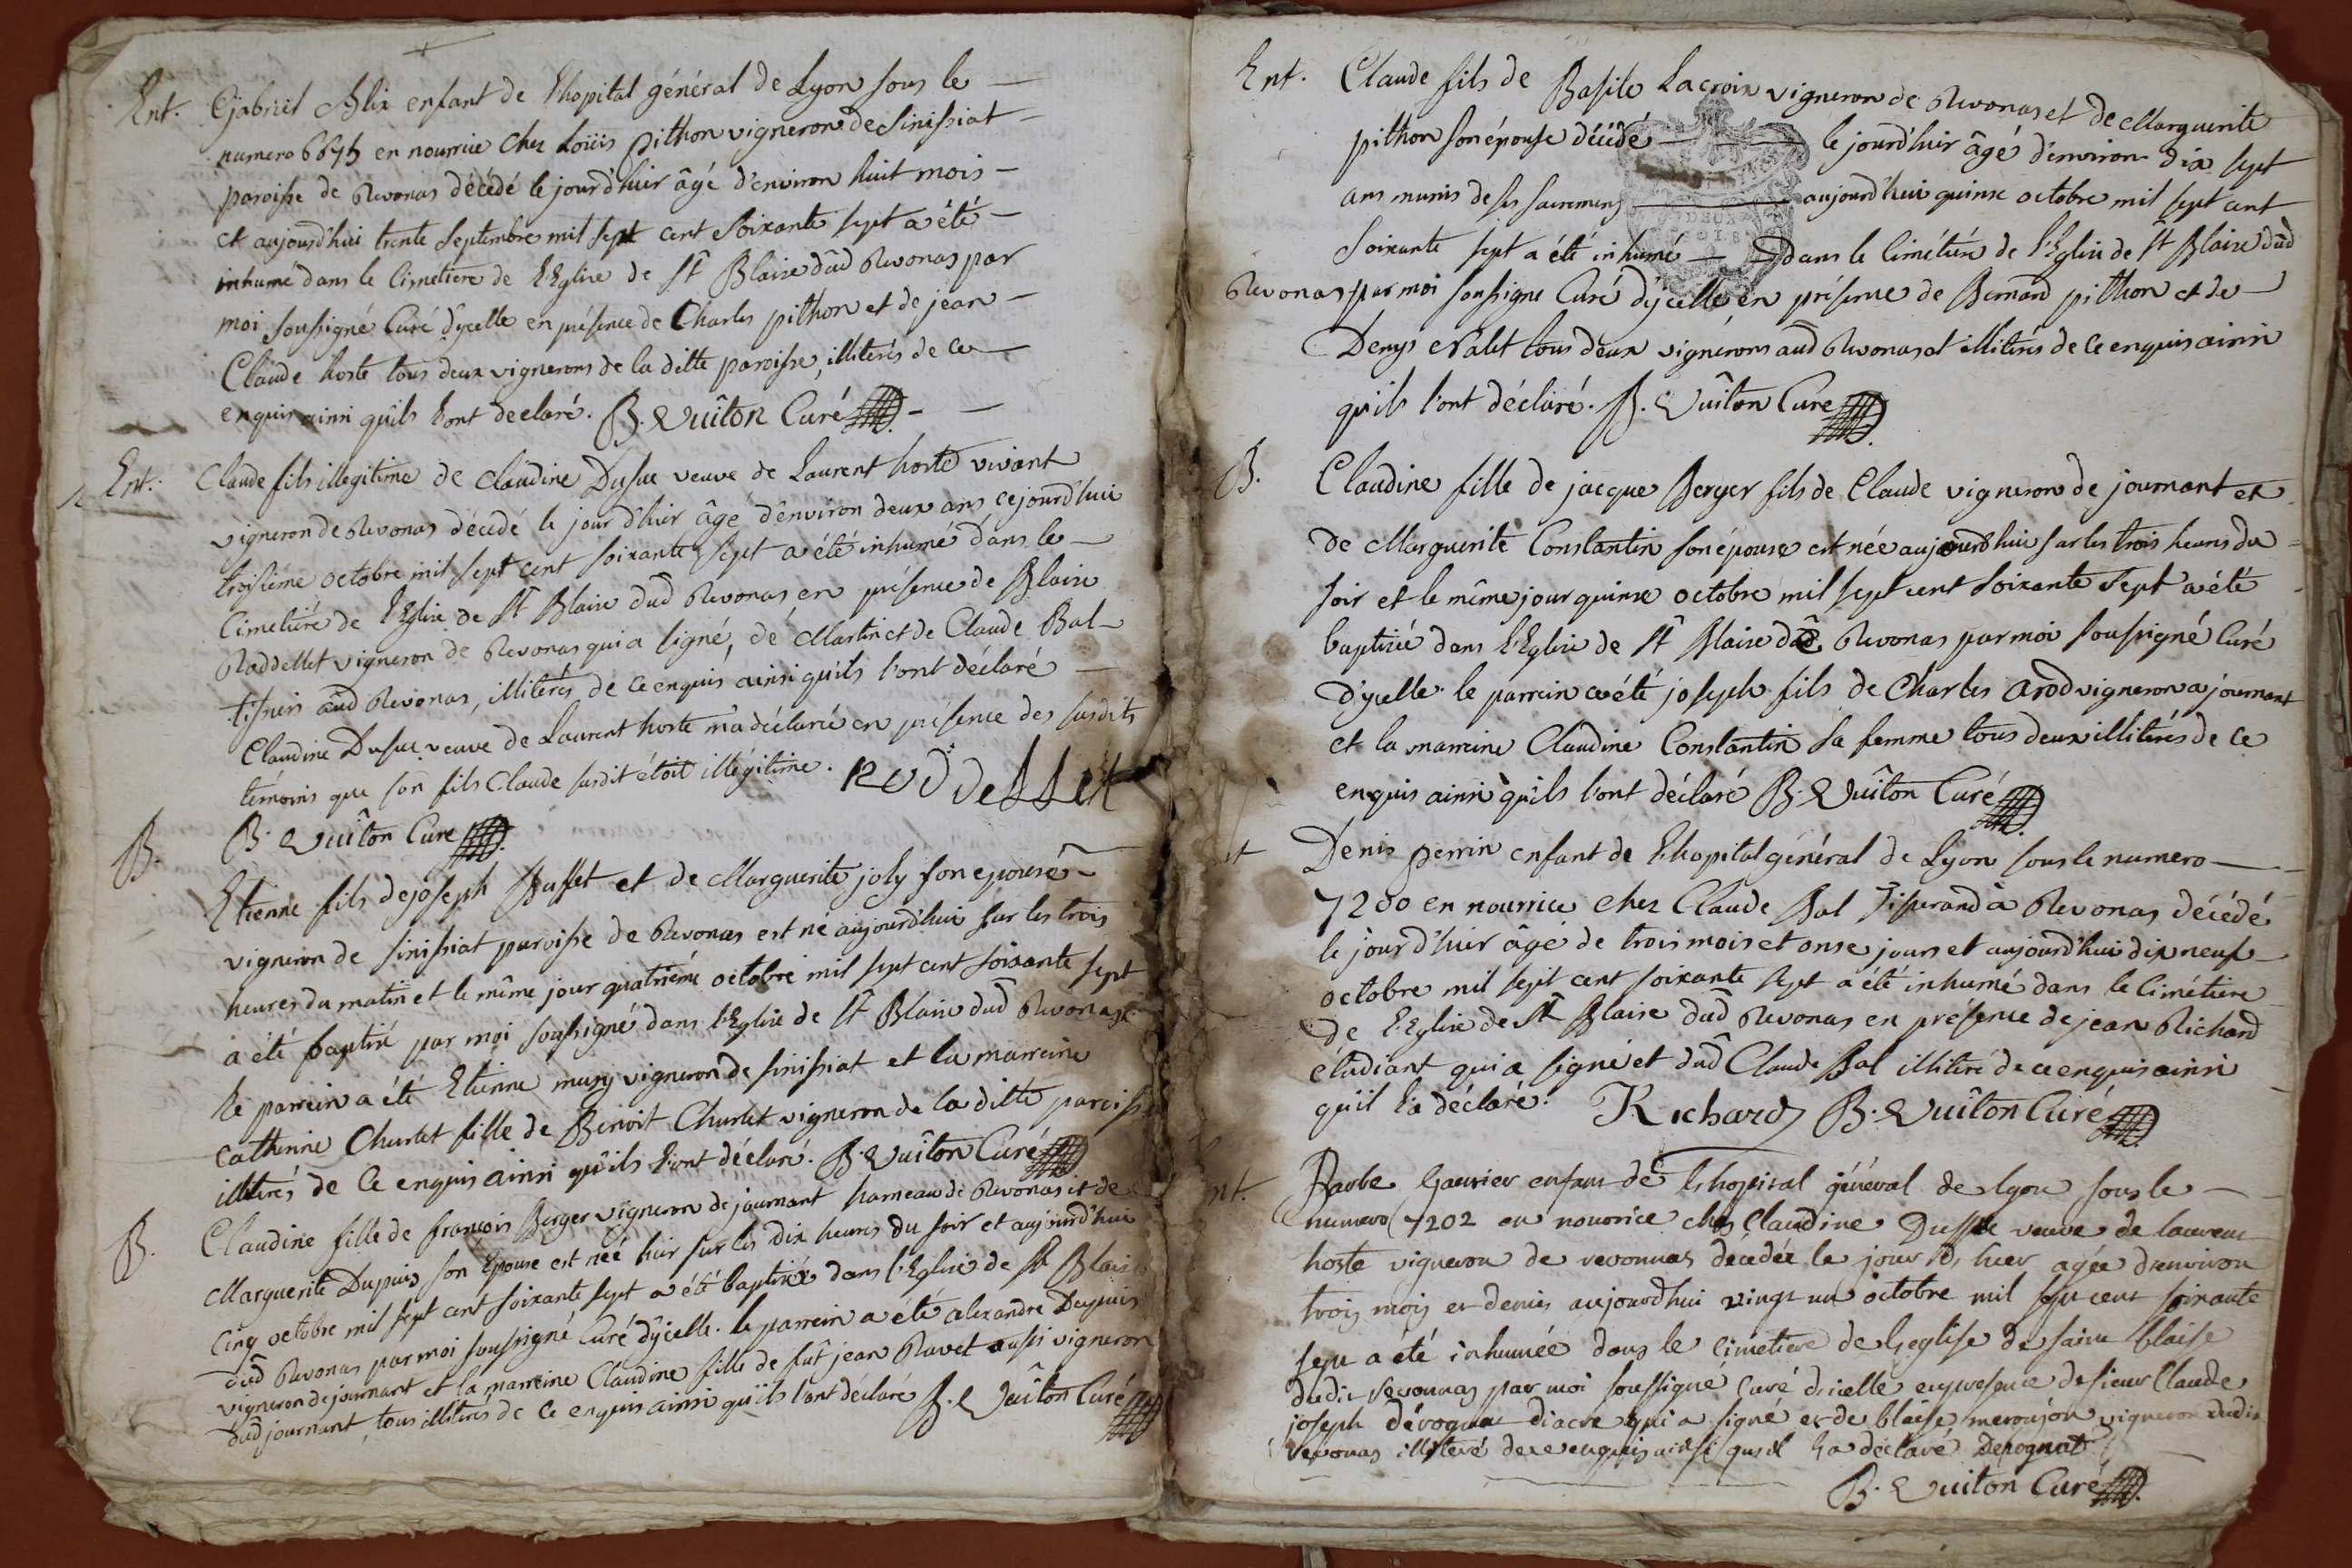 Ent. Gabriel Alix enfant de l'hopital général de Lyon sous le
numero 6675 en nourrice chez Loüis pithon vigneron de Sinissiat
paroisse de Revonas décédé le jourd'hier âgé d'environ huit mois
et aujourd'hui trente septembre mil sept cent soixante sept a été
inhumé dans le Cimetiere de l'Eglise de St Blaise dud Revonas par
moi soussigné Curé d'ycelle en présence de Charles pithon et de jean
Claude hoste tous deux vignerons de la ditte paroisse, illiterés de ce
enquis ainsi qu'ils l'ont declaré. B. Vuiton Curé
Ent. Claude fils illegitime de Claudine Dufue veuve de Laurent hoste vivant
vigneron de Revonas décédé le jourd'hier âgé d'environ deux ans cejourd'hui
troisieme octobre mil sept cent soixante sept a été inhumé dans le
Cimetiére de l'Eglise de St Blaise dud Revonas en présence de Blaise
Raddellet vigneron de Revonas qui a signé, de Martin et de Claude Bal
tissiers aud Revonas, illiterés de ce enquis ainsi qu'ils l'ont déclaré
Claudine Dufue veuve de Laurent hoste m'a déclaré en présence des susdits
témoins que son fils Claude susdit étoit illégitime. Roddellet
B. Vuiton Curé
B. Etienne fils de joseph Buffet et de Marguerite joly son epouse
vigneron de sinissiat paroisse de Revonas est né aujourd'hui sur les trois
heures du matin et le même jour quatrième octobre mil sept cent soixante sept
a été baptisé par moi soussigné dans l'Eglise de St Blaise dud Revonas
le parrein a été Etienne musy vigneron de sinissiat et la marreine
Catherine Churlet fille de Benoit Churlet vigneron de la ditte paroisse
illiterés de ce enquis ainsi qu'ils l'ont déclaré. B. Vuiton Curé
B. Claudine fille de françois Berger vigneron de journant hameau de Revonas et de
Marguerite Dupuis son Epouse est née hier sur les dix heures du soir et aujourd'hui
cinq octobre mil sept cent soixante sept a été baptisée dans l'Eglise de St Blaise
dud Revonas par moi soussigné Curé d'ycelle. le parrein a été alexandre Dupuis
vigneron de journant et la marreine Claudine fille de fût jean Ravet aussi vigneron
dud journant, tous illiterés de ce enquis ainsi qu'ils l'ont déclaré B. Vuiton Curé
Ent. Claude fils de Basile Lacroix vigneron de Revonas et de Marguerite
pithon son épouse décédé le jourd'hier âgé d'environ dix sept
ans munis de ses sacremens aujourd'hui quinze octobre mil sept cent
soixante sept a été inhumé dans le Cimétiére de l'Eglise de St Blaise dud
Revonas par moi soussigné Curé d'ycelle en présence de Bernard pithon et de
Denys Valet tous deux vignerons aud Revonas et illiterés de ce enquis ainsi
qu'ils l'ont déclaré. B. Vuiton Curé
B. Claudine fille de jacque Berger fils de Claude vigneron de journant et
de Marguerite Constantin son épouse est née aujourd'hui sur les trois heures du
soir et le même jour quinze octobre mil sept cent soixante sept a été
baptisée dans l'Eglise de St Blaise dud Revonas par moi soussigné Curé
d'ycelle. le parrein a été joseph fils de Charles arod vigneron a journant
et la marreine Claudine Constantin sa femme tous deux illiterés de ce
enquis ainsi qu'ils l'ont déclaré B. Vuiton Curé
Denis perrin enfant de l'hopital général de Lyon sous le numero
7200 en nourrice chez Claude Bal Tisserand à Revonas décédé
le jourd'hier âgé de trois mois et onze jours et aujourd'hui dix neuf
octobre mil sept cent soixante sept a été inhumé dans le Cimétiere
de l'Eglise de St Blaise dud Revonas en présence de jean Richard
étudiant qui a signé et dud Claude Bal illiteré de ce enquis ainsi
qu'il l'a déclaré. Richard B. Vuiton Curé
Barbe enfant de l'hopital général de lyon sous le
numero 7202 en nourrice chez Claudine Duffue veuve de laurent
hoste vigneron de revonnas décédée le jour d'hier agée d'environ
trois mois et demis aujourd'hui vingt un octobre mil sept cent soixante
sept a été inhumée dans le cimétiere de l'eglise de saint blaise
dudit revonnas par moi soussigné curé d'icelle en presence de sieur Claude
joseph dérognat diacre qui a signé et de blaise vigneron dudit
revonas illiteré de ce enquis ainsi qu'il l'a déclaré Derognat
B. Vuiton Curé